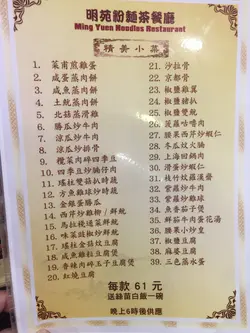 明苑粉麵茶餐廳
Ming Yuen Noodles Restaurant
精美小菜
1. 菜甫煎雞蛋
2. 咸蛋蒸肉餅
3. 咸魚蒸肉餅
4. 土魷蒸肉餅
5. 北菇蒸滑雞
6. 勝瓜炒牛肉
7. 涼瓜炒牛肉
8. 涼瓜炒斑片
9. 欖菜肉碎四季豆
10. 四季豆炒腩仔肉
11. 瑤柱雙菇扒時蔬
12. 方魚雞球炒時蔬
13. 金銀蛋勝瓜
14. 西芹炒雞柳/鮮魷
15. 馬拉棧通菜鮮魷
16. 味菜鼓椒炒鮮魷
17. 瑤柱金菇炆豆腐
18. 咸魚雞粒豆腐煲
19. 香辣肉碎玉子豆腐煲
20. 紅燒豆腐
21. 沙拉骨
22. 京都骨
23. 椒鹽雞翼
24. 椒鹽豬扒
25. 椒鹽雙魷
26. 菠蘿咕嚕肉
27. 腰果西芹炒蝦仁
28. 冬瓜炆火腩
29. 上海回鍋肉
30. 滑蛋炒蝦仁
31. 枝竹炆羅漢齋
32. 紫蘿炒牛肉
33. 紫蘿炒雞片
34. 魚香茄子煲
35. 鮮茄牛肉蛋花湯
36. 腰果炒肉丁
37. 椒鹽豆腐
38. 麻婆豆腐
39. 三色蒸水蛋
每款 61 元
送絲苗白飯一碗
晚上6時後供應